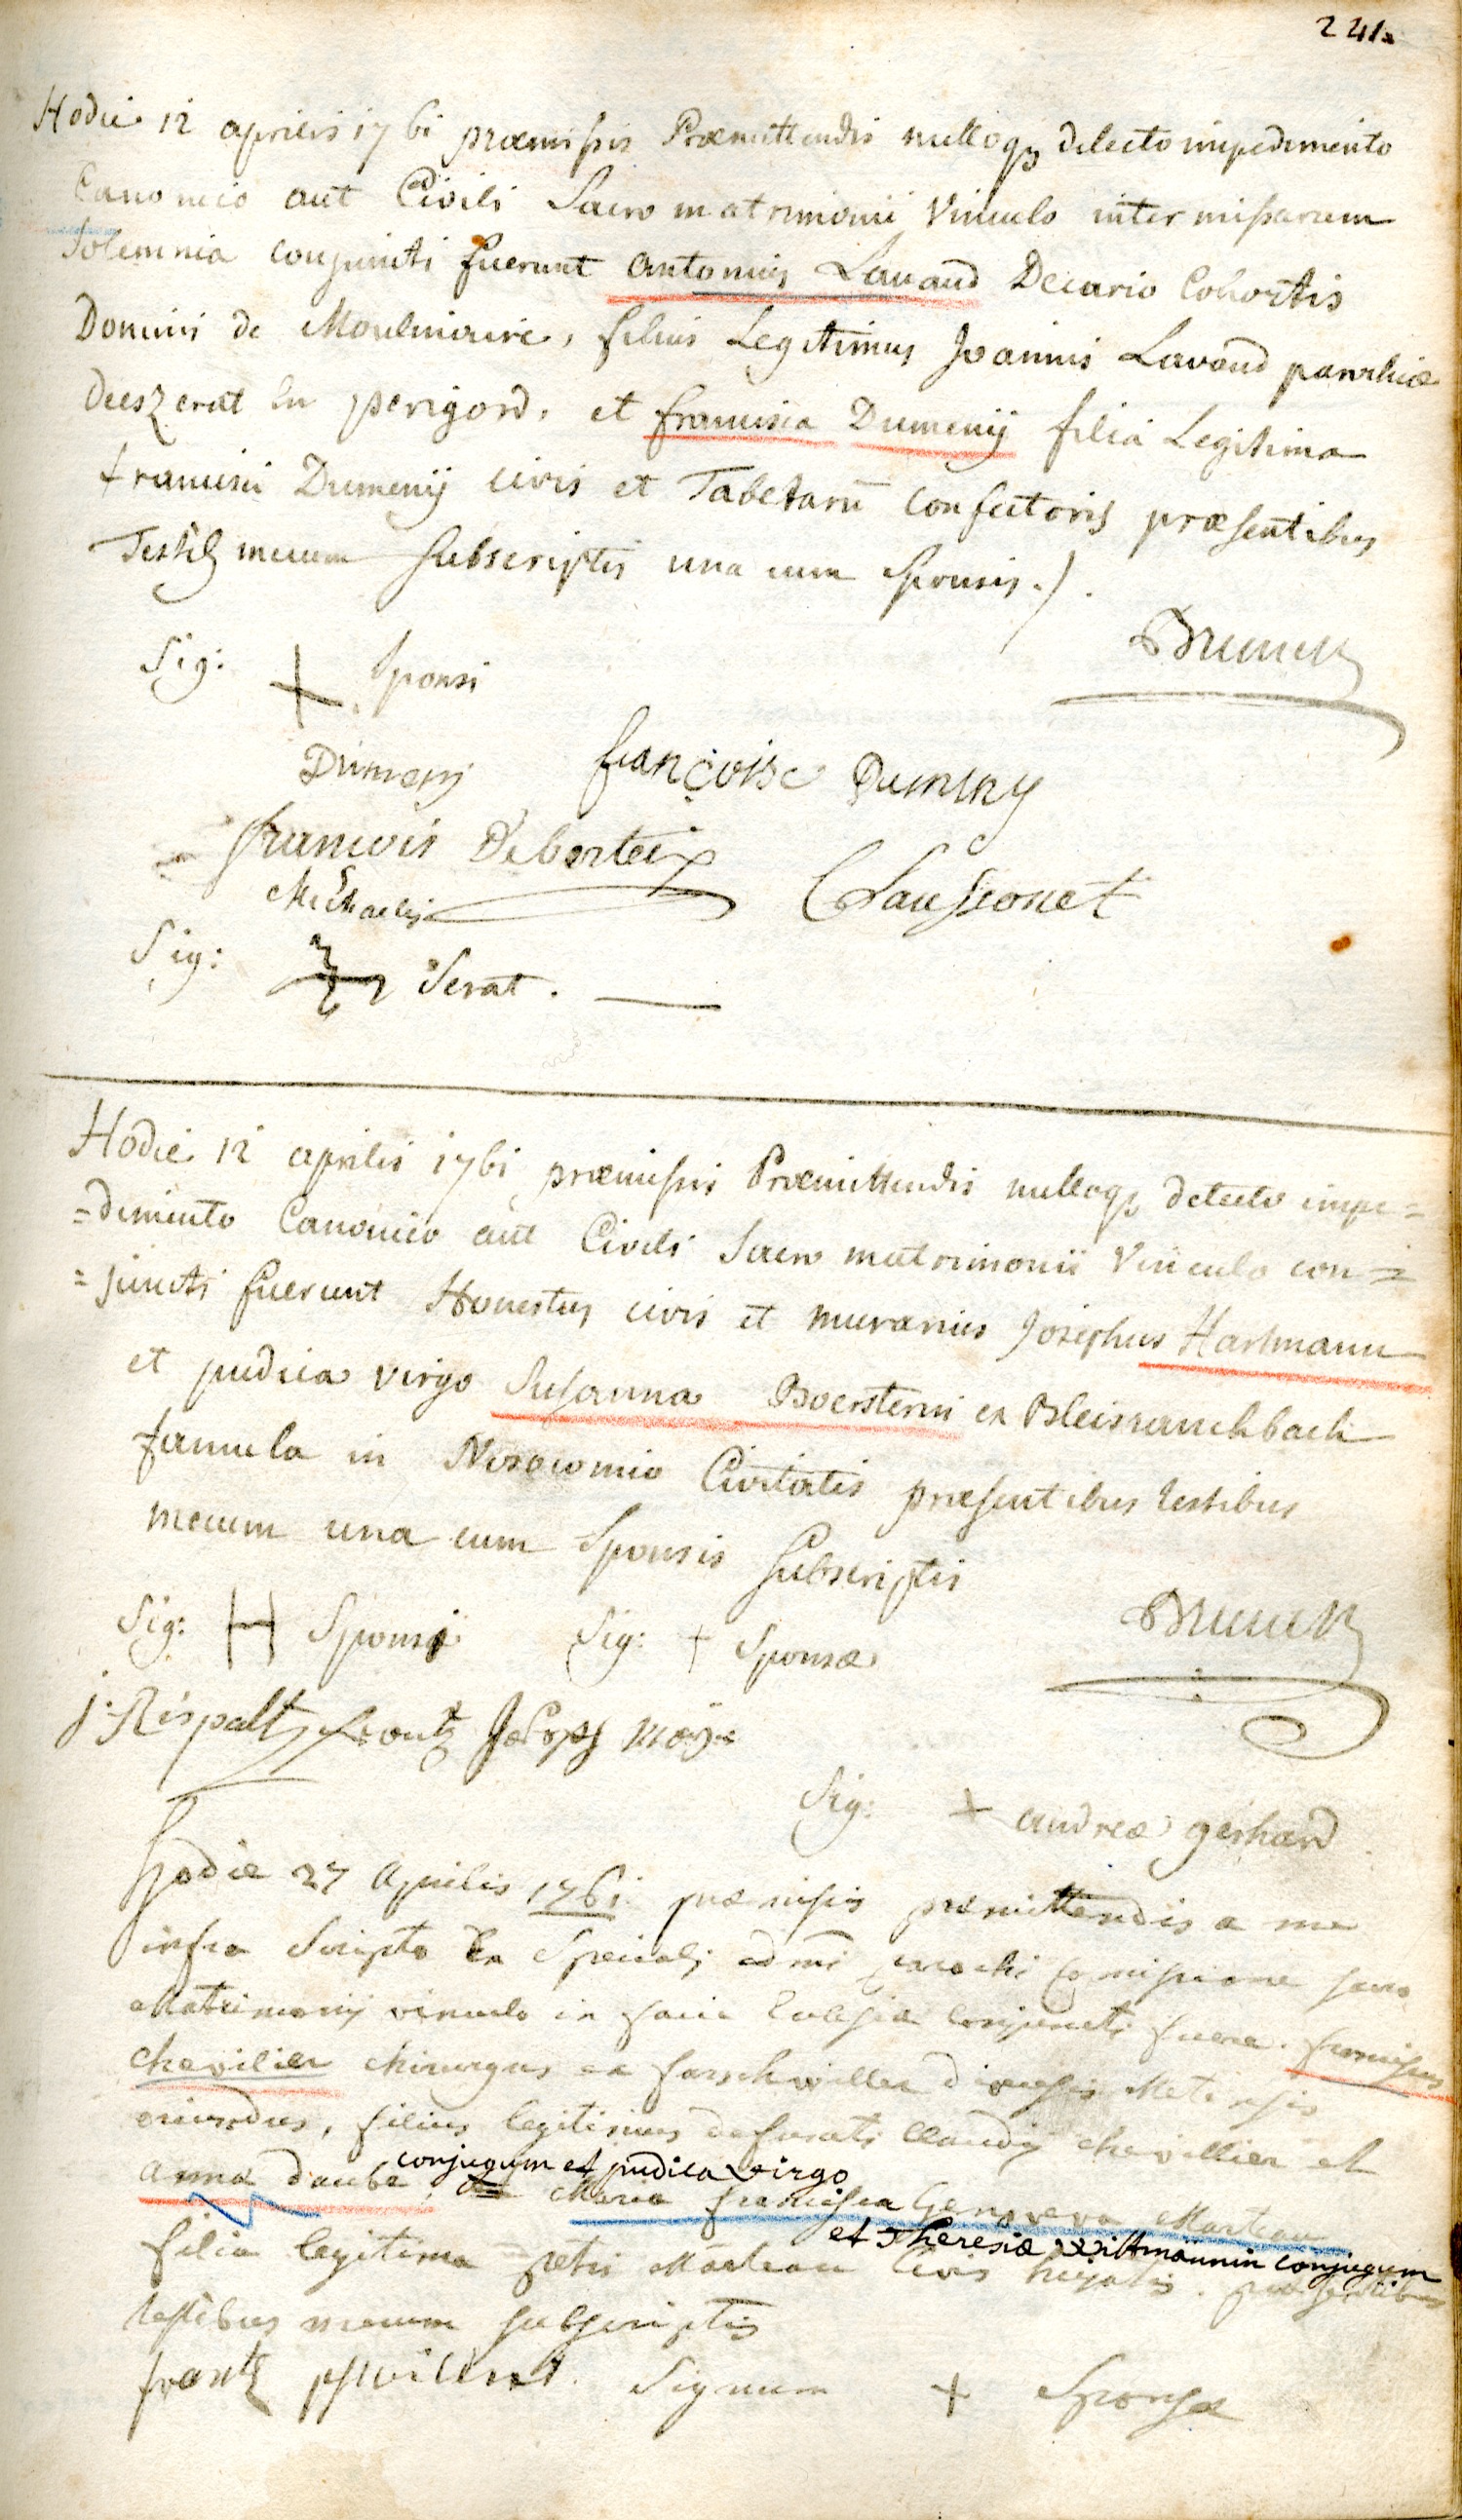 241.
Hodie 12 aprilis 1761 præmissis Præmittendis nulloq₃ detecto impedimento
Canonico aut Civili Sacro matrimonii Vinculo inter missarum
Solemnia conjuncti fuerunt antonius Lavaud Decario Cohortis
Domini de Moulmouire, filius Legitimus Joannis Lavaud parochiæ
deeszerat En perigord, et francisca Dumenÿ filia Legitima
francisci Dumenÿ civis et Tabetarū confectoris præsentibus
Testib₉ mecum subscriptis una cum sponsis ./.
Brunck
Sig: + Sponsi
Dumenÿ françoise Dumeny
francois Deborteix
Michaelis Claussonet
Sig: Serat.
Hodie 12 aprilis 1761 præmissis Præmittendis nulloq₃ detecto impe=
=dimento Canonico aut Civili Sacro matrimonii Vinculo con=
=juncti fuerunt Honestus civis et murarius Josephus Hartmann
et pudica virgo Susanna Boersterin ex Bleisranchbach
famula in Nosocomio Civitatis præsentibus testibus
mecum una cum Sponsis subscriptis
Brunck
Sig: H Sponsi Sig: + Sponsæ
j. Rispalt frantz Joseph may
Sig: + andreæ gerhard
Hodie 27 Aprilis 1761 præmissis præmittendis a me
infra Scripto Ex Speciali adm̄ parochi comissione sacro
Matrimonÿ vinculo in facie Ecclesiæ conjuncti fuere. franciscus
chevilier chirurgus ex farschwiller diœcesis Metensis
oriundus, filius legitimus defuncti claudÿ chevillier et
anna daube conjugum et pudica virgo Maria francisca Genoveva Marteau
filia legitima petri Marteau civis hujatis et Theresiæ Wittmannin conjugum præsentibus
testibus mecum subscriptis
frantz Signum + Sponsæ